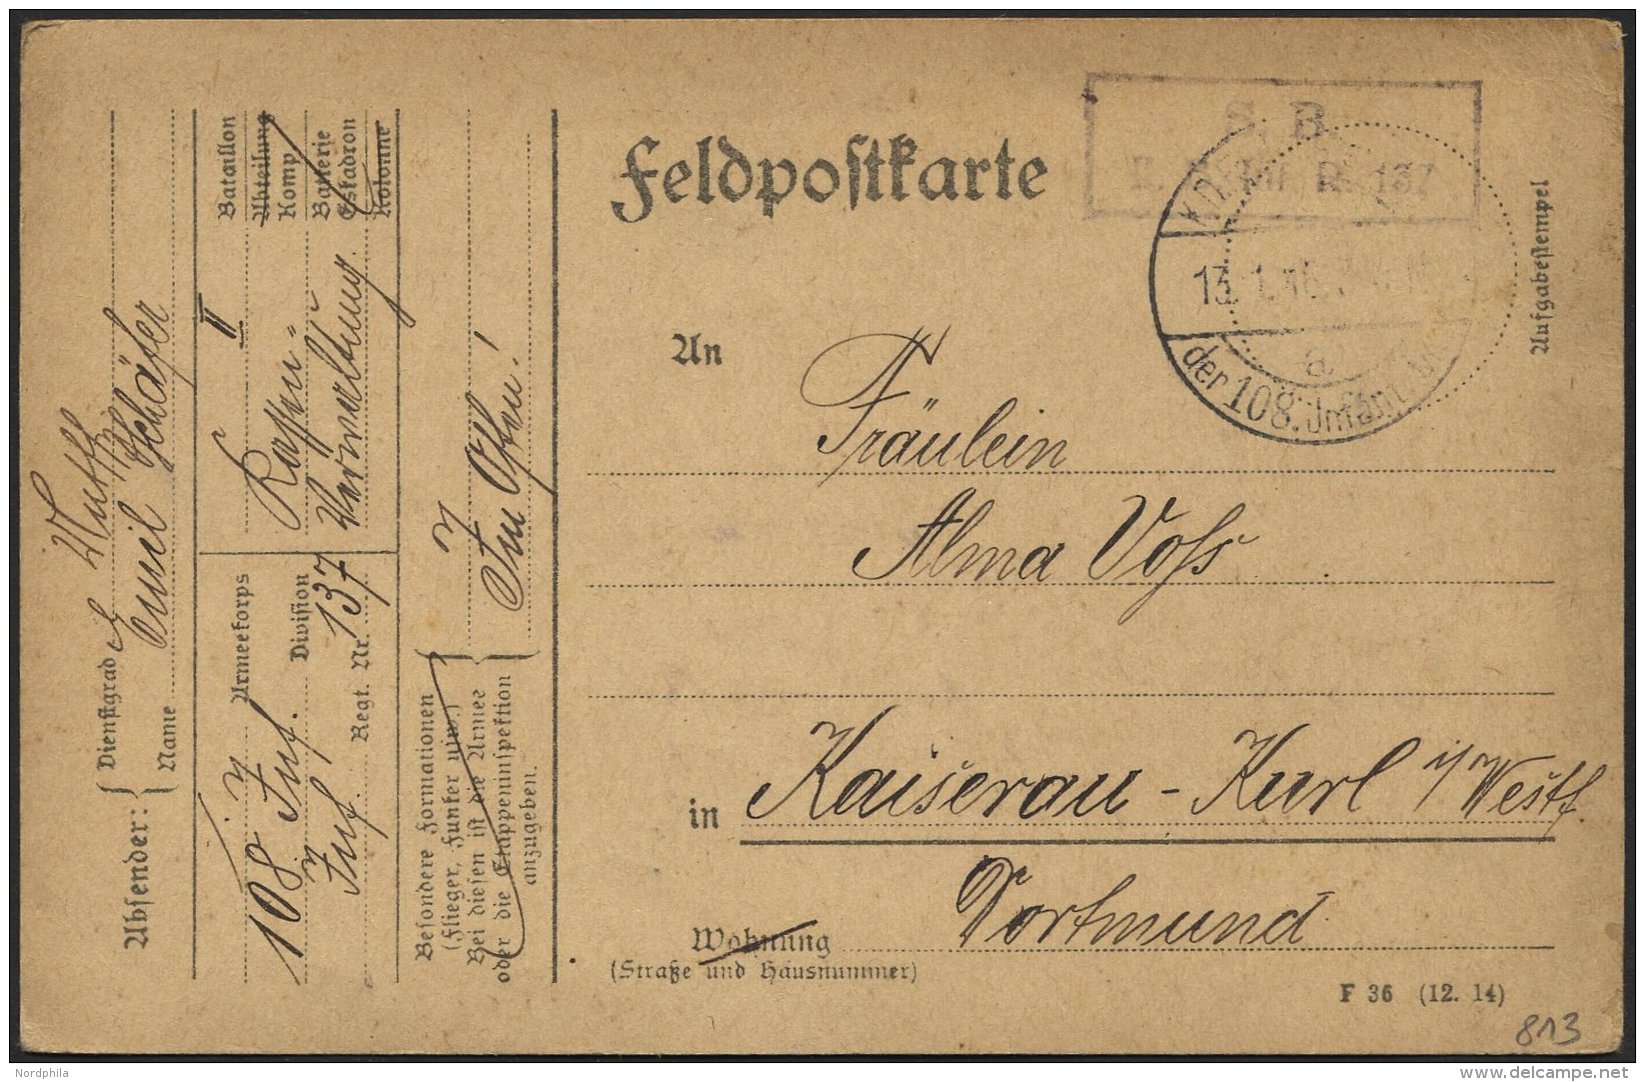 Feldpostkarte
S. B.
R. 137
13. 1. 16.
der 108. Infant.
Aufgabestempel
An
Fräulein
Alma Voß
in Kaiserau - Kurl i/Westf.
Dortmund
Wohnung
(Straße und Hausnummer)
F 36 (12. 14)
813
Absender:
Dienstgrad
Name Emil Schäfer
Armeekorps
108 Inf. Division
Inf. Regt. Nr. 137
II Bataillon
Abteilung
Komp.
Batterie
Eskadron
Kolonne
Kassen-
Verwaltung.
Besondere Formationen
(Flieger, Funker usw.)
Bei diesen ist die Armee
oder die Etappeninspektion
anzugeben.
Im Osten!
Nordphila
www.delcampe.net